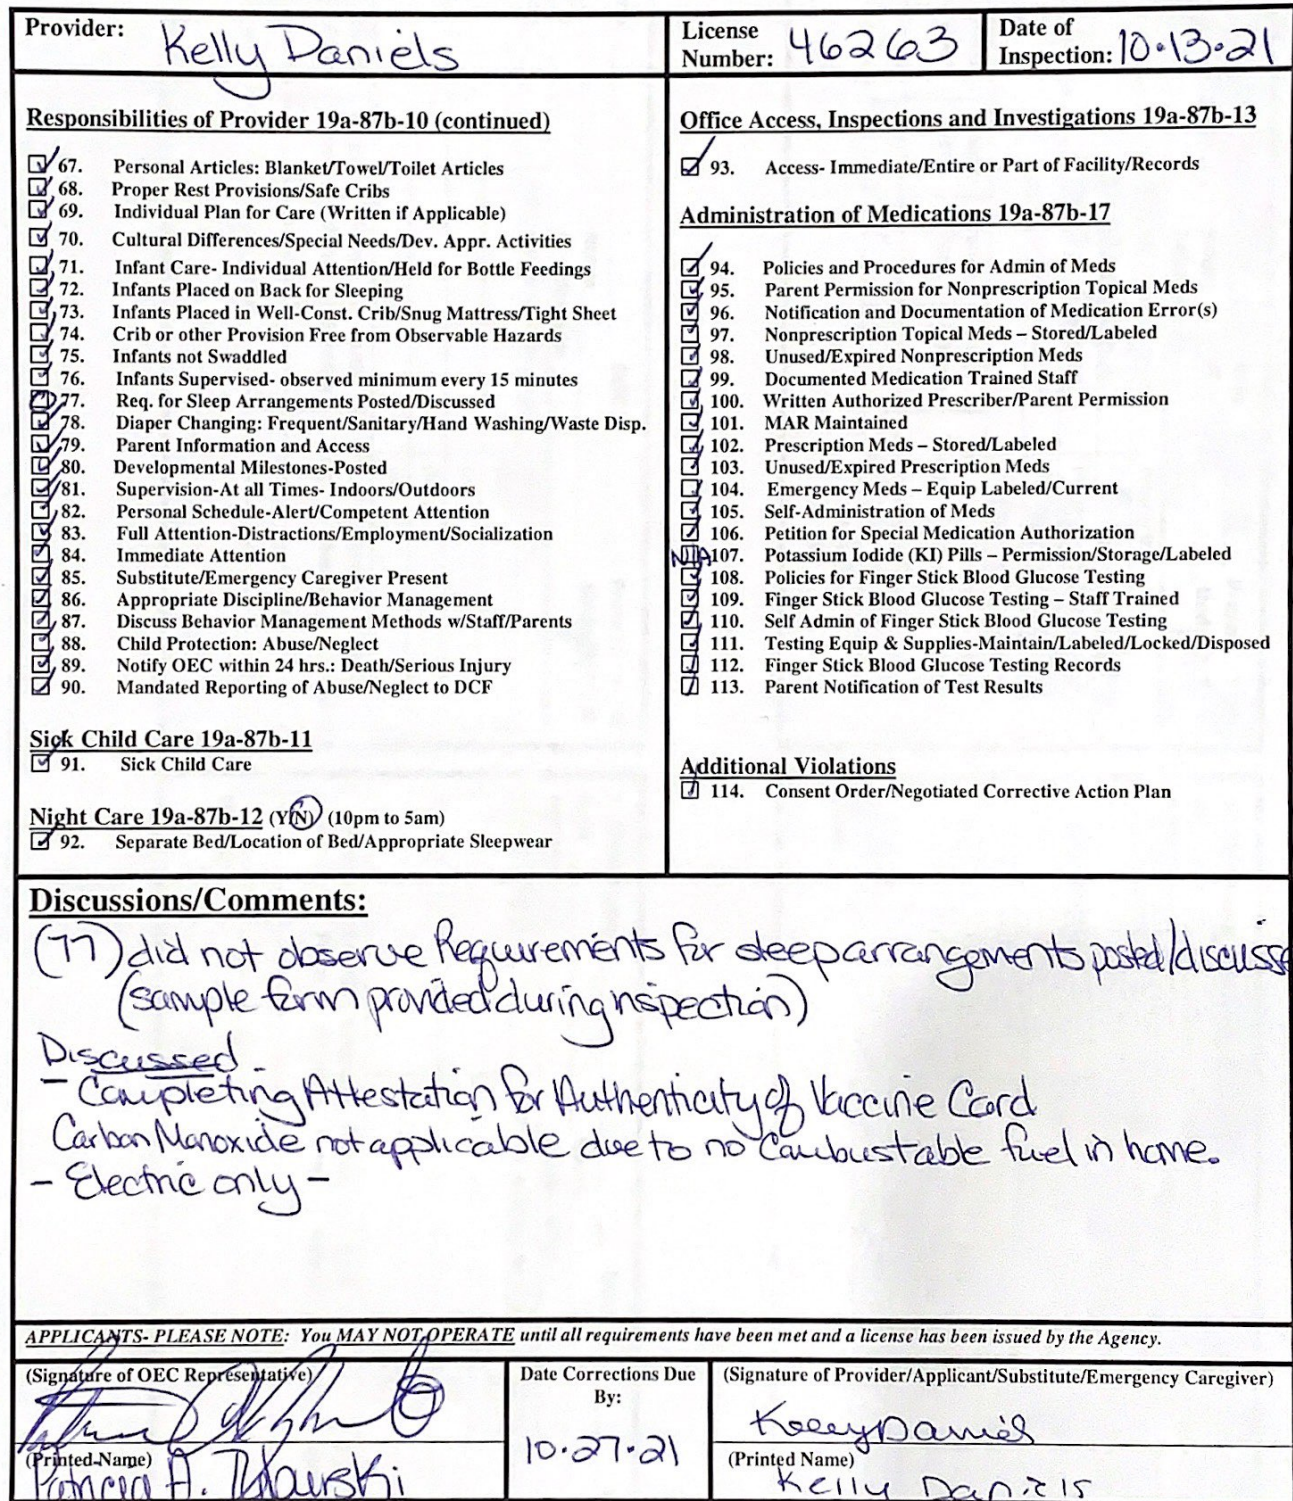 Provider: Kelly Daniels
License Number: 46263
Date of Inspection: 10·13·21
Responsibilities of Provider 19a-87b-10 (continued)
67. Personal Articles: Blanket/Towel/Toilet Articles
68. Proper Rest Provisions/Safe Cribs
69. Individual Plan for Care (Written if Applicable)
70. Cultural Differences/Special Needs/Dev. Appr. Activities
71. Infant Care- Individual Attention/Held for Bottle Feedings
72. Infants Placed on Back for Sleeping
73. Infants Placed in Well-Const. Crib/Snug Mattress/Tight Sheet
74. Crib or other Provision Free from Observable Hazards
75. Infants not Swaddled
76. Infants Supervised- observed minimum every 15 minutes
77. Req. for Sleep Arrangements Posted/Discussed
78. Diaper Changing: Frequent/Sanitary/Hand Washing/Waste Disp.
79. Parent Information and Access
80. Developmental Milestones-Posted
81. Supervision-At all Times- Indoors/Outdoors
82. Personal Schedule-Alert/Competent Attention
83. Full Attention-Distractions/Employment/Socialization
84. Immediate Attention
85. Substitute/Emergency Caregiver Present
86. Appropriate Discipline/Behavior Management
87. Discuss Behavior Management Methods w/Staff/Parents
88. Child Protection: Abuse/Neglect
89. Notify OEC within 24 hrs.: Death/Serious Injury
90. Mandated Reporting of Abuse/Neglect to DCF
Sick Child Care 19a-87b-11
91. Sick Child Care
Night Care 19a-87b-12 (Y/N) (10pm to 5am)
92. Separate Bed/Location of Bed/Appropriate Sleepwear
Office Access, Inspections and Investigations 19a-87b-13
93. Access- Immediate/Entire or Part of Facility/Records
Administration of Medications 19a-87b-17
94. Policies and Procedures for Admin of Meds
95. Parent Permission for Nonprescription Topical Meds
96. Notification and Documentation of Medication Error(s)
97. Nonprescription Topical Meds – Stored/Labeled
98. Unused/Expired Nonprescription Meds
99. Documented Medication Trained Staff
100. Written Authorized Prescriber/Parent Permission
101. MAR Maintained
102. Prescription Meds – Stored/Labeled
103. Unused/Expired Prescription Meds
104. Emergency Meds – Equip Labeled/Current
105. Self-Administration of Meds
106. Petition for Special Medication Authorization
N/A 107. Potassium Iodide (KI) Pills – Permission/Storage/Labeled
108. Policies for Finger Stick Blood Glucose Testing
109. Finger Stick Blood Glucose Testing – Staff Trained
110. Self Admin of Finger Stick Blood Glucose Testing
111. Testing Equip & Supplies-Maintain/Labeled/Locked/Disposed
112. Finger Stick Blood Glucose Testing Records
113. Parent Notification of Test Results
Additional Violations
114. Consent Order/Negotiated Corrective Action Plan
Discussions/Comments:
(77) did not observe Requirements for sleep arrangements posted/discusse
(sample form provided during inspection)
Discussed
- Completing Attestation for Authenticity of Vaccine Card
Carbon Monoxide not applicable due to no Combustable fuel in home.
- Electric only -
APPLICANTS- PLEASE NOTE: You MAY NOT OPERATE until all requirements have been met and a license has been issued by the Agency.
(Signature of OEC Representative)
(Printed Name)
Patricia A.
Date Corrections Due By:
10·27·21
(Signature of Provider/Applicant/Substitute/Emergency Caregiver)
Kelly Daniels
(Printed Name)
Kelly Daniels